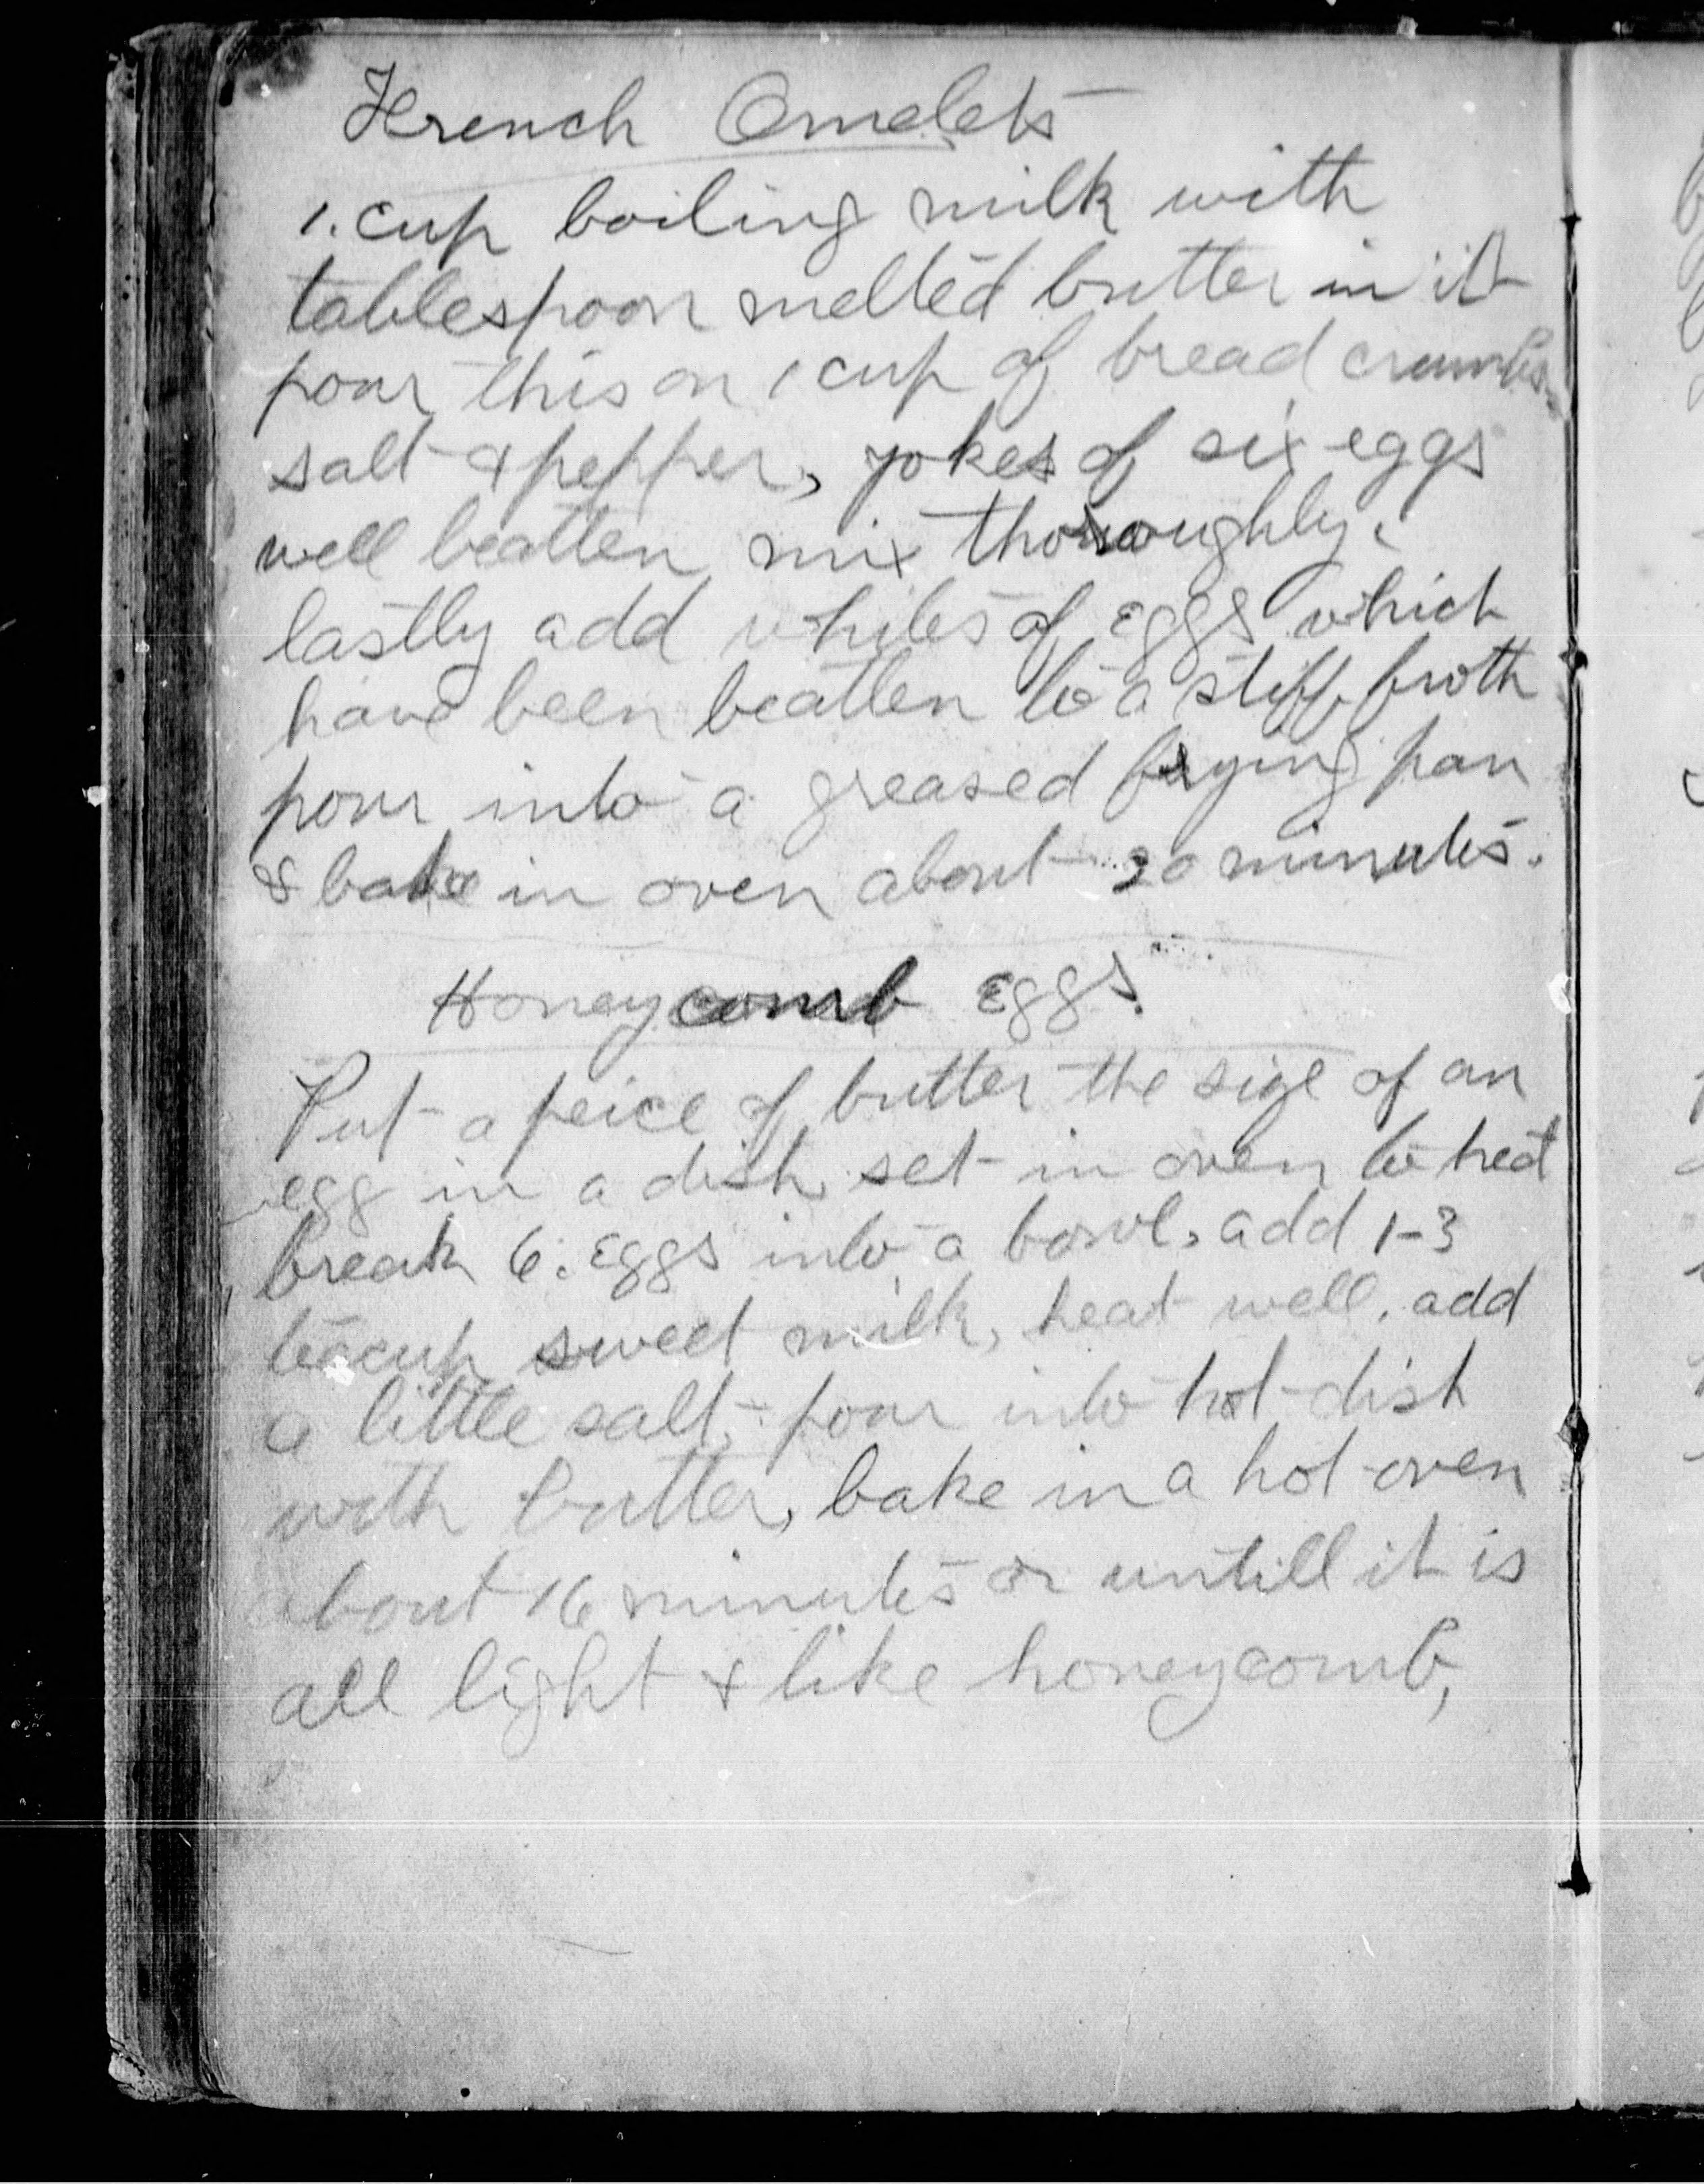 French Omelets
1. cup boiling milk with
tablespoon melted butter in it
pour this on 1 cup of bread crumbs
salt & pepper, yokes of six eggs
well beatten mix thoroughly.
lastly add whites of eggs which
have been beatten to a stiff froth
pour into a greased frying pan
& bake in oven about 20 minutes.
Honeycomb Eggs.
Put a peice of butter the size of an
egg in a dish, set in oven to heat
break 6. eggs into a bowl, add 1-3
teacup sweet milk, beat well, add
a little salt, pour into hot dish
with butter, bake in a hot oven
about 16 minutes or untill it is
all light & like honeycomb,